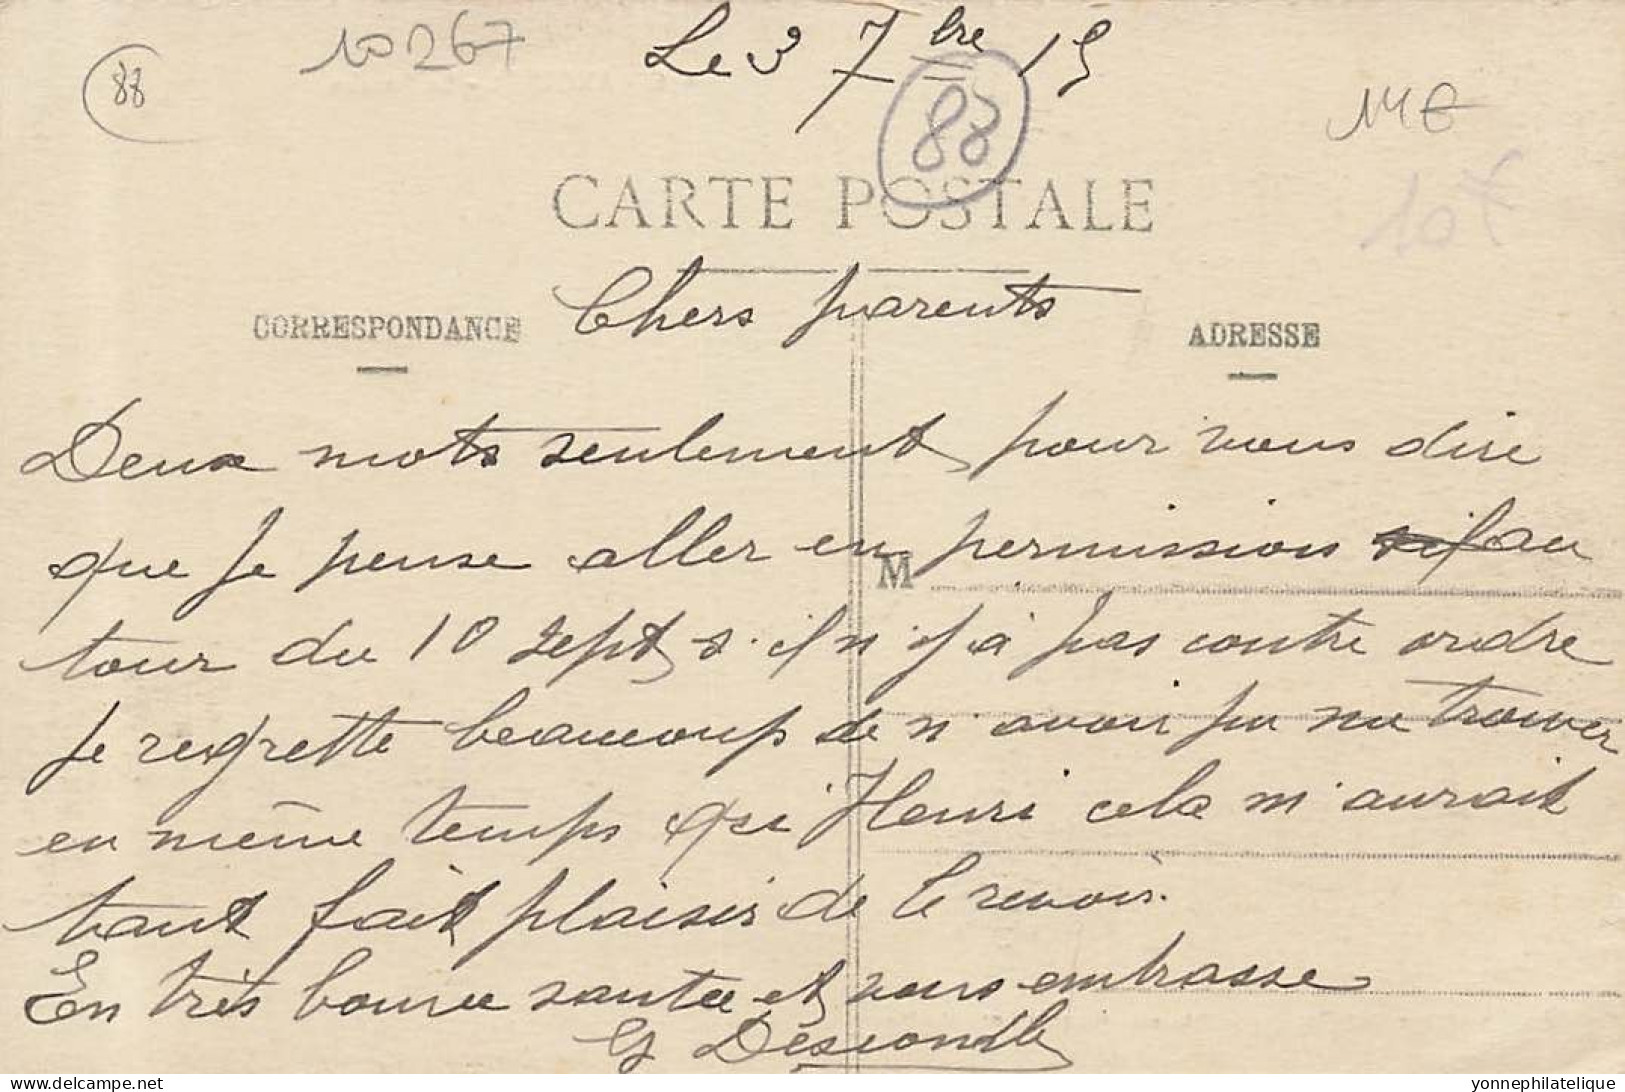 10267
Le 3 7bre 15
88
88
14 €
10 €
CARTE POSTALE
Chers parents
CORRESPONDANCE
ADRESSE
Deux mots seulement pour vous dire
que je pense aller en permission au
M
tour du 10 sept s'il n'y a pas contre ordre
Je regrette beaucoup de n'avoir pu me trouver
en même temps qui Henri cela m'aurait
tant fait plaisir de le revoir.
En très bonne santée et vous embrasse
G
yonnephilatelique